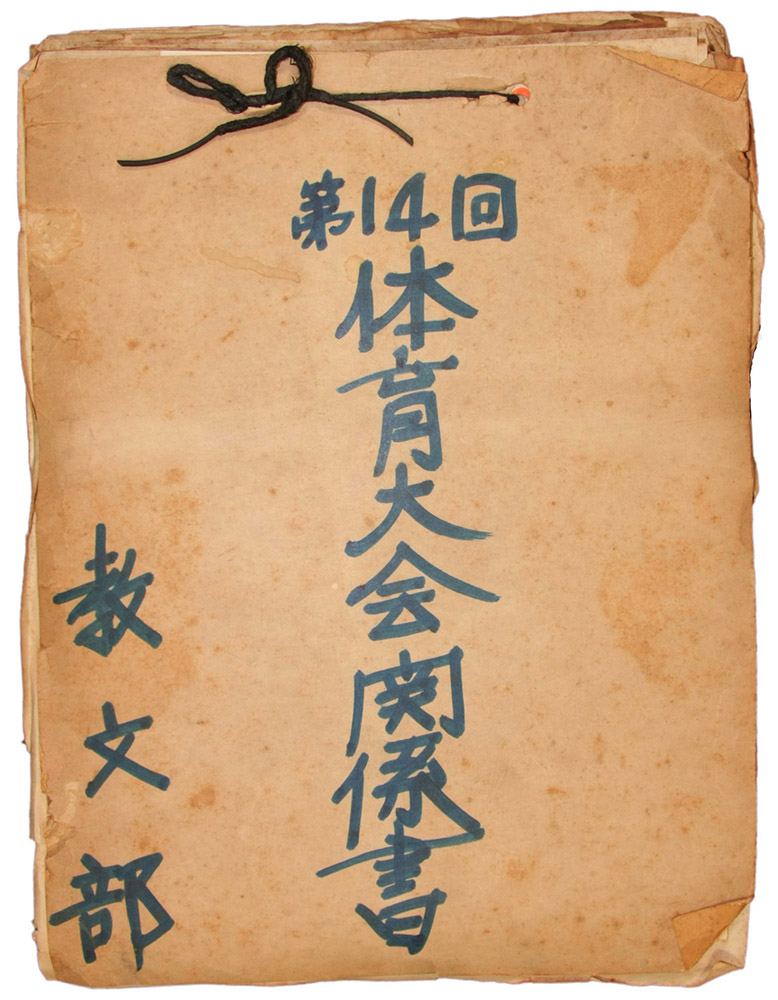 第14回
体育大会関係書
教文部